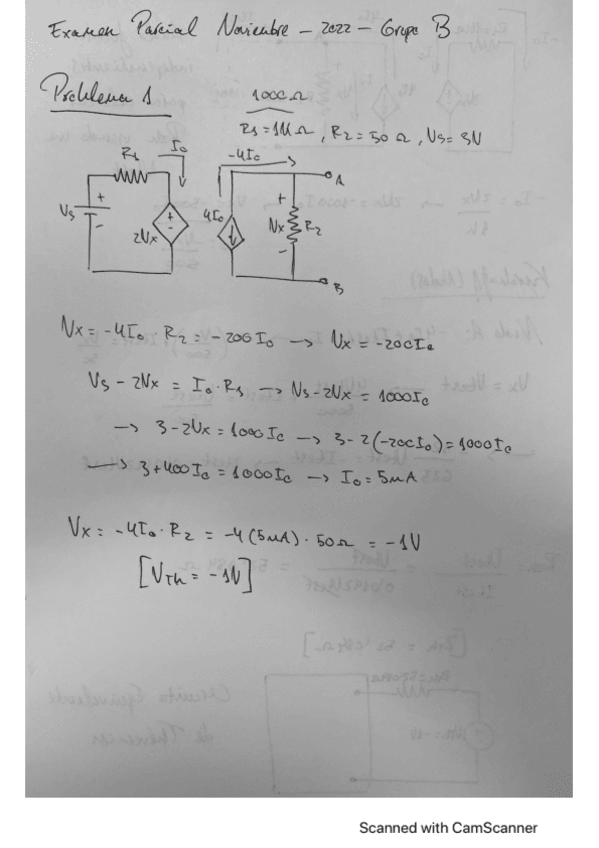 Examen Parcial Noviembre - 2022 - Grupo B
Problema 1
1000Ω
R1 = 1KΩ, R2 = 50Ω, Vs = 3V
R1
Io
-4Io
A
Vs
+
-
2Vx
+
-
4Io
+
Vx
-
R2
B
Vx = -4Io · R2 = -200Io → Vx = -200Io
Vs - 2Vx = Io · R1 → Vs - 2Vx = 1000Io
→ 3 - 2Vx = 1000Io → 3 - 2(-200Io) = 1000Io
→ 3 + 400Io = 1000Io → Io = 5mA
Vx = -4Io · R2 = -4(5mA) · 50Ω = -1V
[VTh = -1V]
Scanned with CamScanner